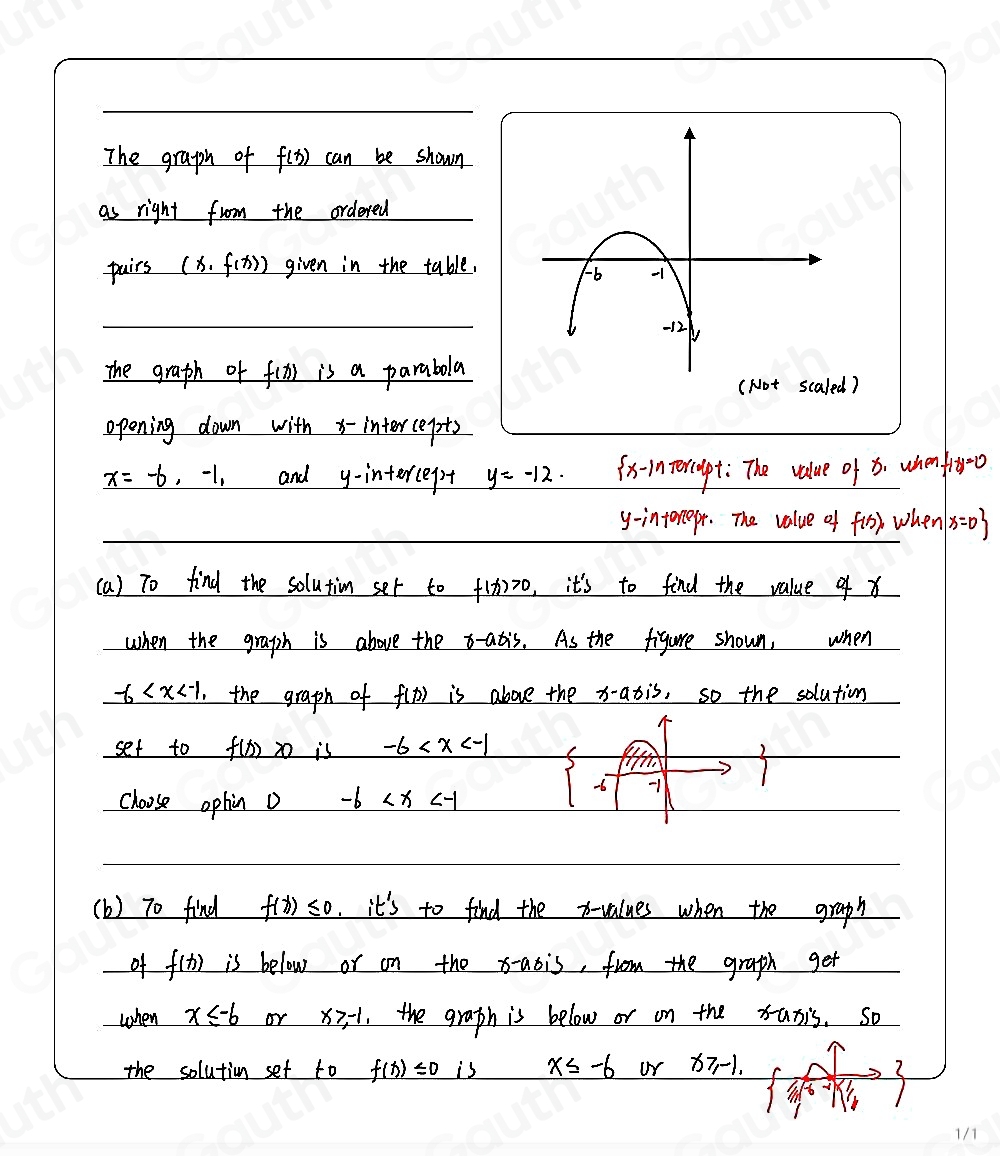 The graph of f(x) can be shown
as right from the ordered
pairs (x, f(x)) given in the table.
-6 -1
-12
(Not scaled)
The graph of f(x) is a parabola
opening down with x-intercepts
x = -6, -1, and y-intercept y = -12.
{x-intercept: The value of x. when f(x)=0
y-intercept. The value of f(x), when x=0}
(a) To find the solution set to f(x)>0, it's to find the value of x
when the graph is above the x-axis. As the figure shown, when
-6 < x < -1. the graph of f(x) is above the x-axis, so the solution
set to f(x) >0 is -6 < x < -1
{ -6 -1 }
Choose option D -6 < x < -1
(b) To find f(x) ≤ 0. it's to find the x-values when the graph
of f(x) is below or on the x-axis, from the graph get
when x ≤ -6 or x ≥ -1. the graph is below or on the x-axis. So
the solution set to f(x) ≤ 0 is x ≤ -6 or x ≥ -1.
{ -6 -1 }
1/1
Gauth